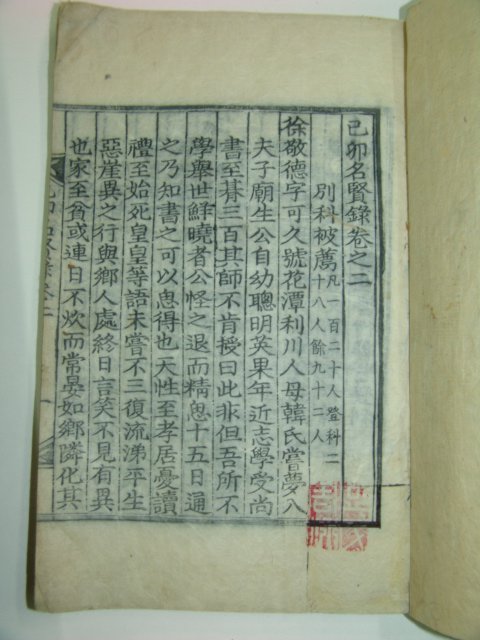 己卯名賢錄卷之二
別科被薦凡一百二十人登科二十八人餘九十二人
徐敬德字可久號花潭利川人母韓氏嘗夢入
夫子廟生公自幼聰明英果年近志學受尚
書至朞三百其師不肯授曰此非但吾所不
學擧世鮮曉者公怪之退而精思十五日通
之乃知書之可以思得也天性至孝居憂讀
禮至始死皇皇等語未嘗不三復流涕平生
惡崖異之行與鄉人處終日言笑不見有異
也家至貧或連日不炊而常晏如鄉隣化其